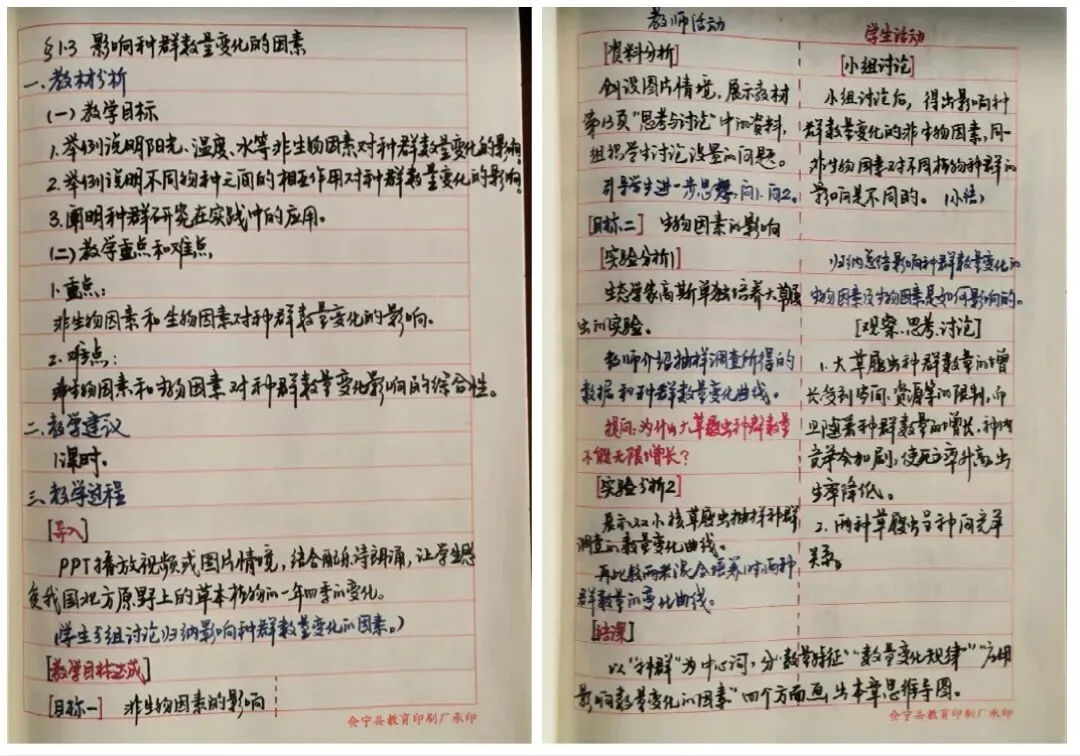 §1·3 影响种群数量变化的因素
一、教材分析
(一)教学目标
1.举例说明阳光、温度、水等非生物因素对种群数量变化的影响。
2.举例说明不同物种之间的相互作用对种群数量变化的影响。
3.阐明种群研究在实践中的应用。
(二)教学重点和难点
1.重点:
非生物因素和生物因素对种群数量变化的影响。
2.难点:
非生物因素和生物因素对种群数量变化影响的综合性。
二、教学建议
1课时。
三、教学过程
[导入]
PPT播放视频或图片情境,结合配乐诗朗诵,让学生感
受我国北方原野上的草本植物的一年四季的变化。
(学生分组讨论归纳影响种群数量变化的因素。)
[教学目标达成]
[目标一] 非生物因素的影响
会宁县教育印刷厂承印
教师活动
[资料分析]
创设图片情境,展示教材
第15页“思考与讨论”中的资料,
组织学生讨论设置的问题。
引导学生进一步思考,问1、问2。
[目标二] 生物因素的影响
[实验分析1]
生态学家高斯单独培养大草履
虫的实验。
教师介绍抽样调查所得的
数据和种群数量变化曲线。
提问:为什么大草履虫种群数量
不能无限增长?
[实验分析2]
展示双小核草履虫抽样种群
调查的数量变化曲线。
再比较两者混合培养时,两种
群数量的变化曲线。
学生活动
[小组讨论]
小组讨论后,得出影响种
群数量变化的非生物因素,同一
非生物因素对不同植物种群的
影响是不同的。(小结)
归纳总结影响种群数量变化的
生物因素及生物因素是如何影响的。
[观察、思考、讨论]
1.大草履虫种群数量的增
长受到空间、资源等的限制,而
且随着种群数量的增长,种内
竞争会加剧,使死亡率升高,出
生率降低。
2.两种草履虫呈种间竞争
关系。
[结课]
以“种群”为中心词,分“数量特征”“数量变化规律”“应用
影响数量变化的因素”四个方面画出本章思维导图。
会宁县教育印刷厂承印